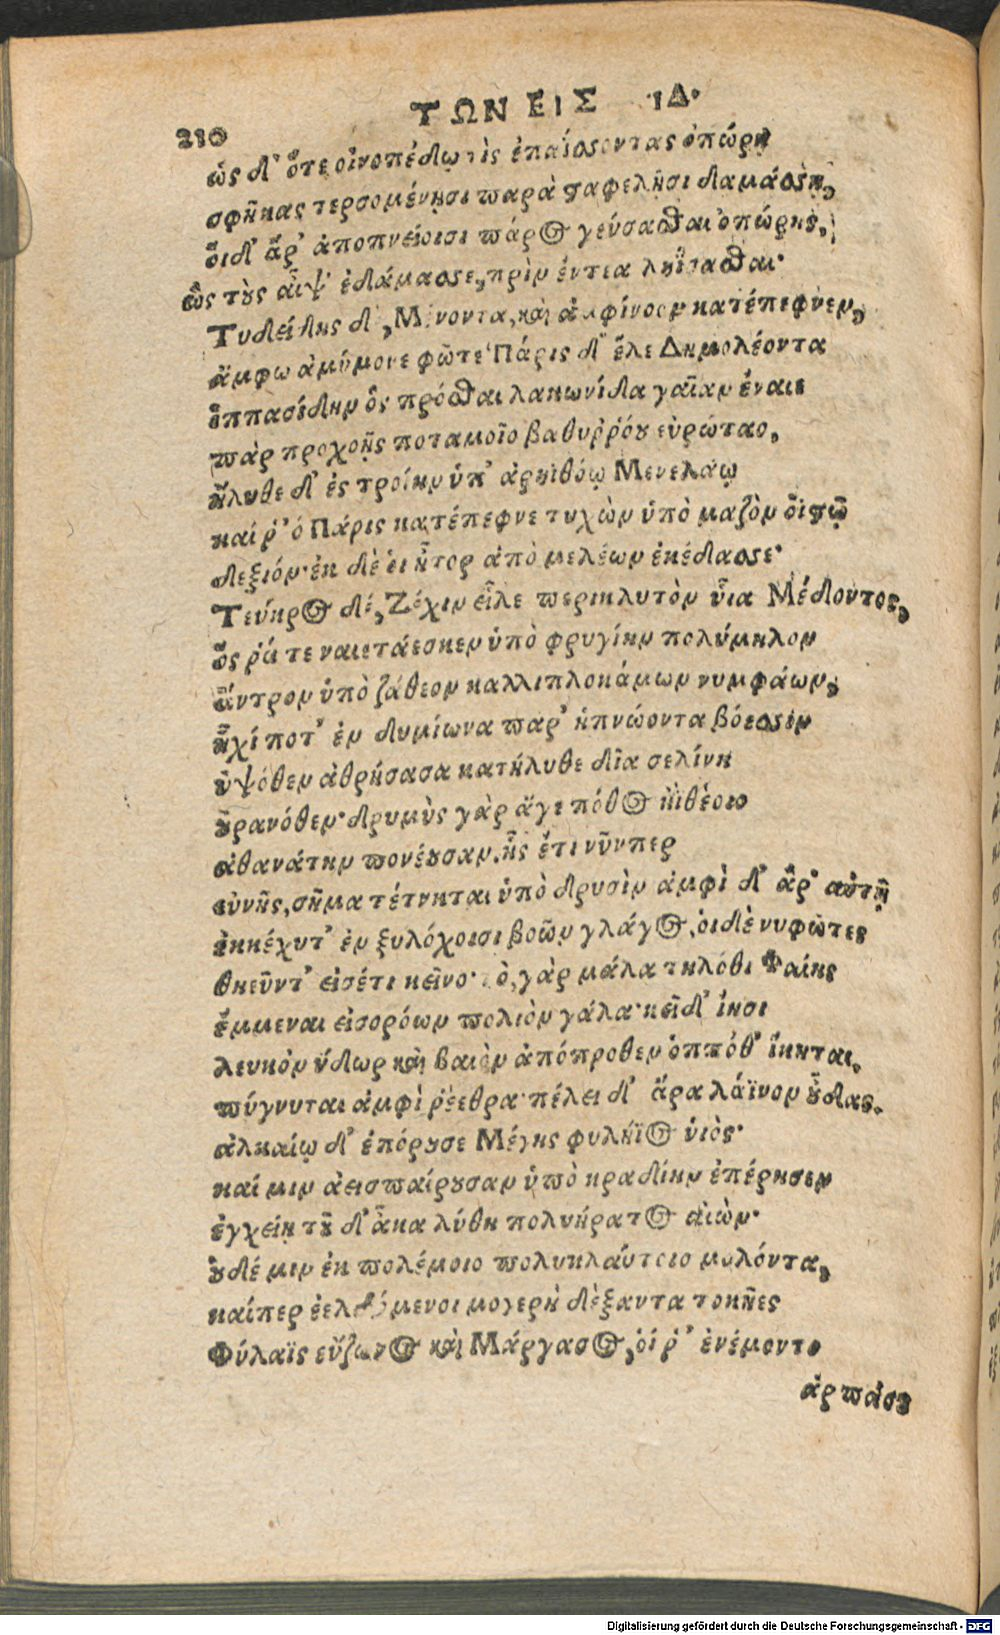 210
ΤΩΝ ΕΙΣ ΙΔ.
ὡς δ' ὅτε οἰνοπέδῳ τὶς ἐπαίσσοντας ὀπώρῃ
σφῆκας τερσομένῃσι παρὰ σταφελῇσι δαμάσσῃ,
οἳδ' ἄρ' ἀποπνείουσι πάρος γεύσασθαι ὀπώρης,
ὣς τοὺς αἶψ' ἐδάμασσε, πρὶν ἔντεα ληΐσασθαι·
Τυδείδης δ', Μένοντα, καὶ ἀμφίνοον κατέπεφνεν,
ἄμφω ἀμύμονε φῶτε· Πάρις δ' ἕλε Δημολέοντα
ἱππασίδην ὃς πρόσθαι λακωνίδα γαῖαν ἔναιε
πὰρ προχοῇς ποταμοῖο βαθυῤῥόου εὐρώταο,
ἤλυθε δ' ἐς τροίην ὑπ' ἀρηϊθόῳ Μενελάῳ
καί ῥ' ὁ Πάρις κατέπεφνε τυχὼν ὑπὸ μαζὸν ὀϊστῷ
δεξιόν· ἐκ δὲ οἱ ἦτορ ἀπὸ μελέων ἐκέδασσε·
Τεύκρος δέ, Ζέχιν εἷλε περικλυτὸν υἷα Μέδοντος,
ὅς ῥά τε ναιετάεσκεν ὑπὸ φρυγίην πολύμηλον
ἄντρον ὑπὸ ζάθεον καλλιπλοκάμων νυμφάων,
ἧχί ποτ' ἐν δυμίωνα παρ' ὑπνώοντα βόεσσιν
ὑψόθεν ἀθρήσασα κατήλυθε δῖα σελήνη
οὐρανόθεν· δρυμὺς γὰρ ἄγε πόθος ἠϊθέοιο
ἀθανάτην πονέουσαν. ἧς ἔτι νῦνπερ
εὐνῆς, σῆμα τέτυκται ὑπὸ δρυσὶν ἀμφὶ δ' ἄρ' αὐτῇ
ἐκκέχυτ' ἐν ξυλόχοισι βοῶν γλάγος, οἱ δὲ νυ φῶτες
θηεῦντ' εἰσέτι κεῖνο· τὸ, γὰρ μάλα τηλόθι Φαίης
ἔμμεναι εἰσορόων πολιὸν γάλα· κεῖ δ' ἵησι
λευκὸν ὕδωρ καὶ βαιὸν ἀπόπροθεν ὁππόθ' ἵκηται,
πύγνυται ἀμφὶ ῥέεθρα· πέλει δ' ἄρα λάϊνον οὖδας.
ἀλκαίῳ δ' ἐπόρουσε Μέγης φυλήϊος υἱὸς·
καί μιν ἀεισπαίρουσαν ὑπὸ κραδίην ἐπέρησεν
ἐγχείῃ τοῦ δ' ὦκα λύθη πολυήρατος αἰὼν·
οὐδέ μιν ἐκ πολέμοιο πολυκλαύτοιο μολόντα,
καίπερ ἐελδόμενοι μογερὴ δέξαντα τοκῆες
Φύλαϊς εὔζωνος καὶ Μάργασος, οἵ ῥ' ἐνέμοντο
ἁρπάσου
Digitalisierung gefördert durch die Deutsche Forschungsgemeinschaft - DFG